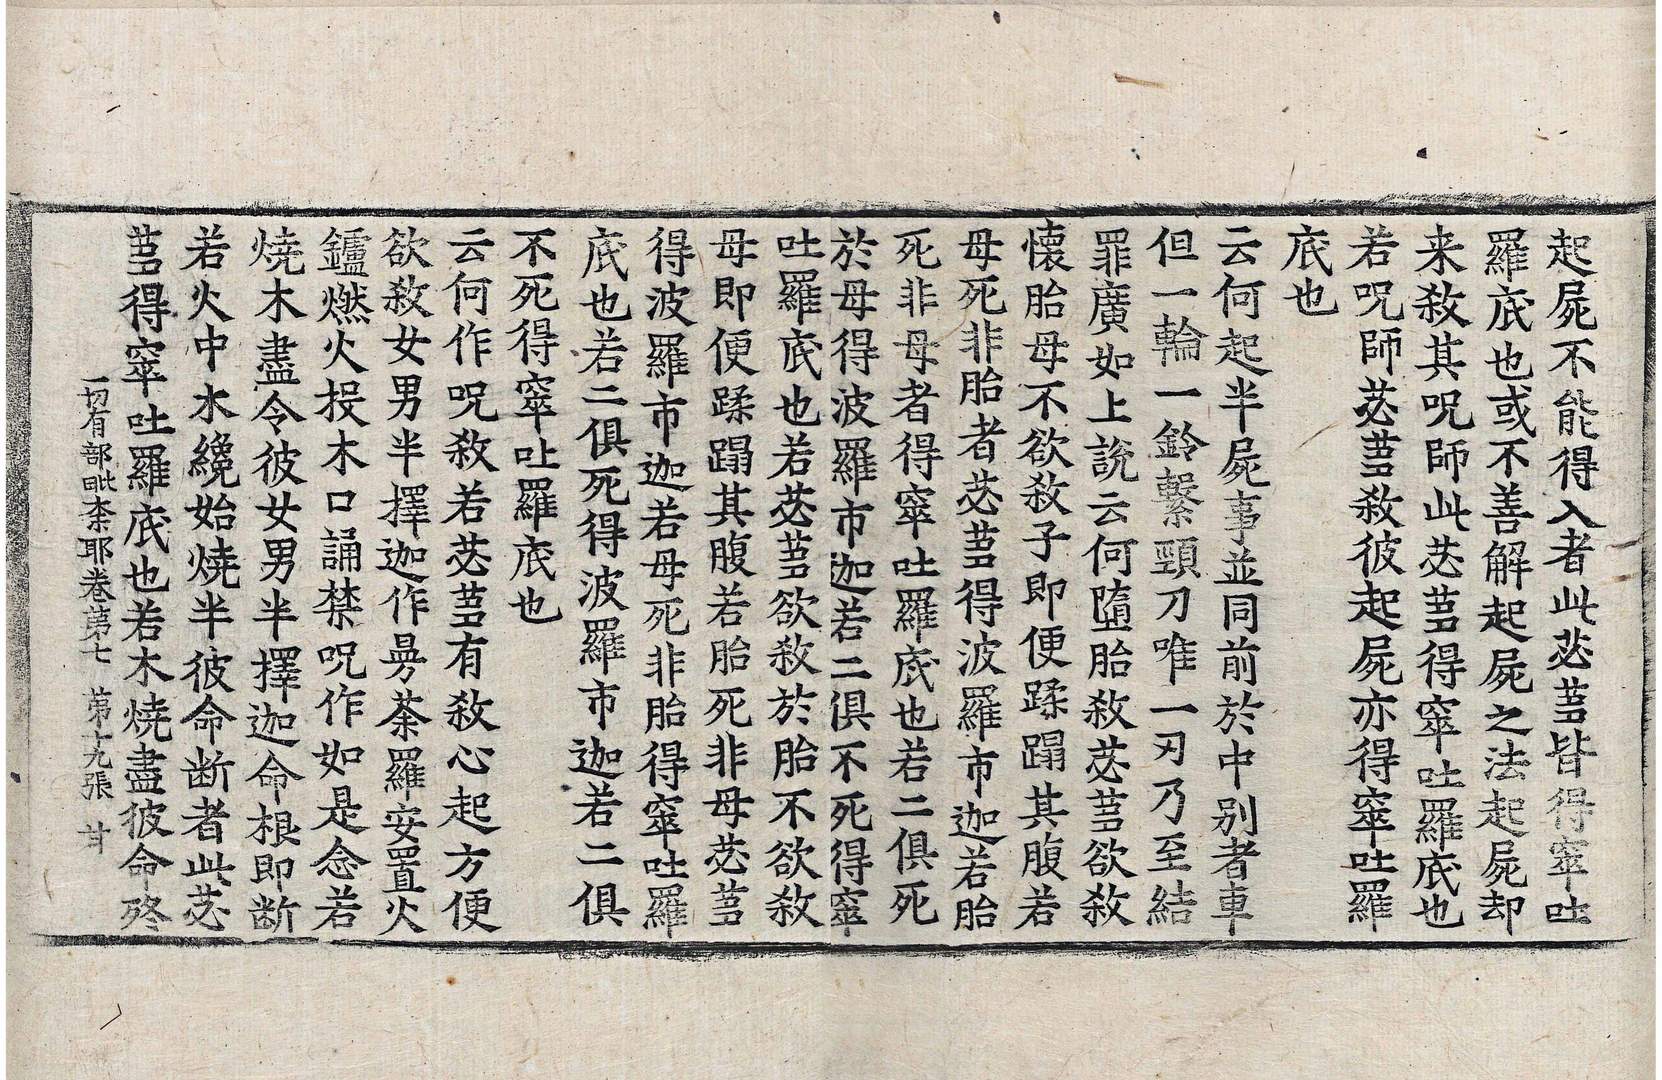 起屍不能得入者此苾蒭皆得窣吐
羅底也或不善解起屍之法起屍却
来敎其呪師此苾蒭得窣吐羅底也
若呪師苾蒭敎彼起屍亦得窣吐羅
底也
云何起半屍事並同前於中别者車
但一輪一鈴繫頸刀唯一刃乃至結
罪廣如上説云何墮胎敎苾蒭欲敎
懐胎母不欲敎子即便蹂蹋其腹若
母死非胎者苾蒭得波羅市迦若胎
死非母者得窣吐羅底也若二俱死
於母得波羅市迦若二俱不死得窣
吐羅底也若苾蒭欲敎於胎不欲敎
母即便蹂蹋其腹若胎死非母苾蒭
得波羅市迦若母死非胎得窣吐羅
底也若二俱死得波羅市迦若二俱
不死得窣吐羅底也
云何作呪敎若苾蒭有敎心起方便
欲敎女男半擇迦作㬅荼羅安置火
鑪燃火投木口誦禁呪作如是念若
燒木盡令彼女男半擇迦命根即断
若火中木纔始燒半彼命断者此苾
蒭得窣吐羅底也若木燒盡彼命終
一切有部毗柰耶卷苐七 苐十九張 甘